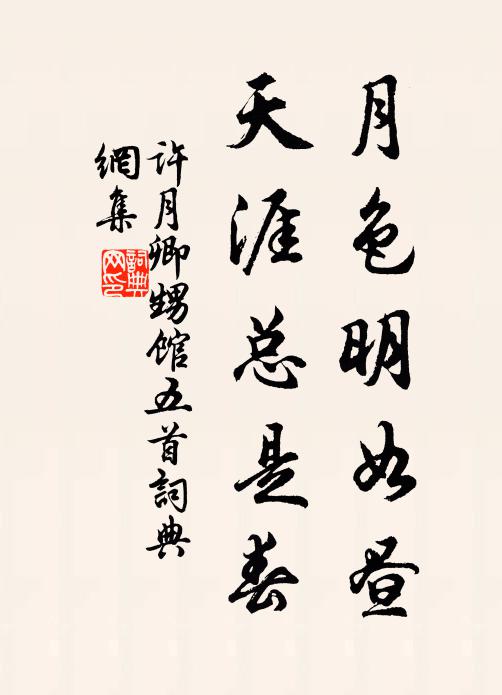 月色明如昼
天涯总是春
許月卿甥馆五首詞典
網集
詞典
网印